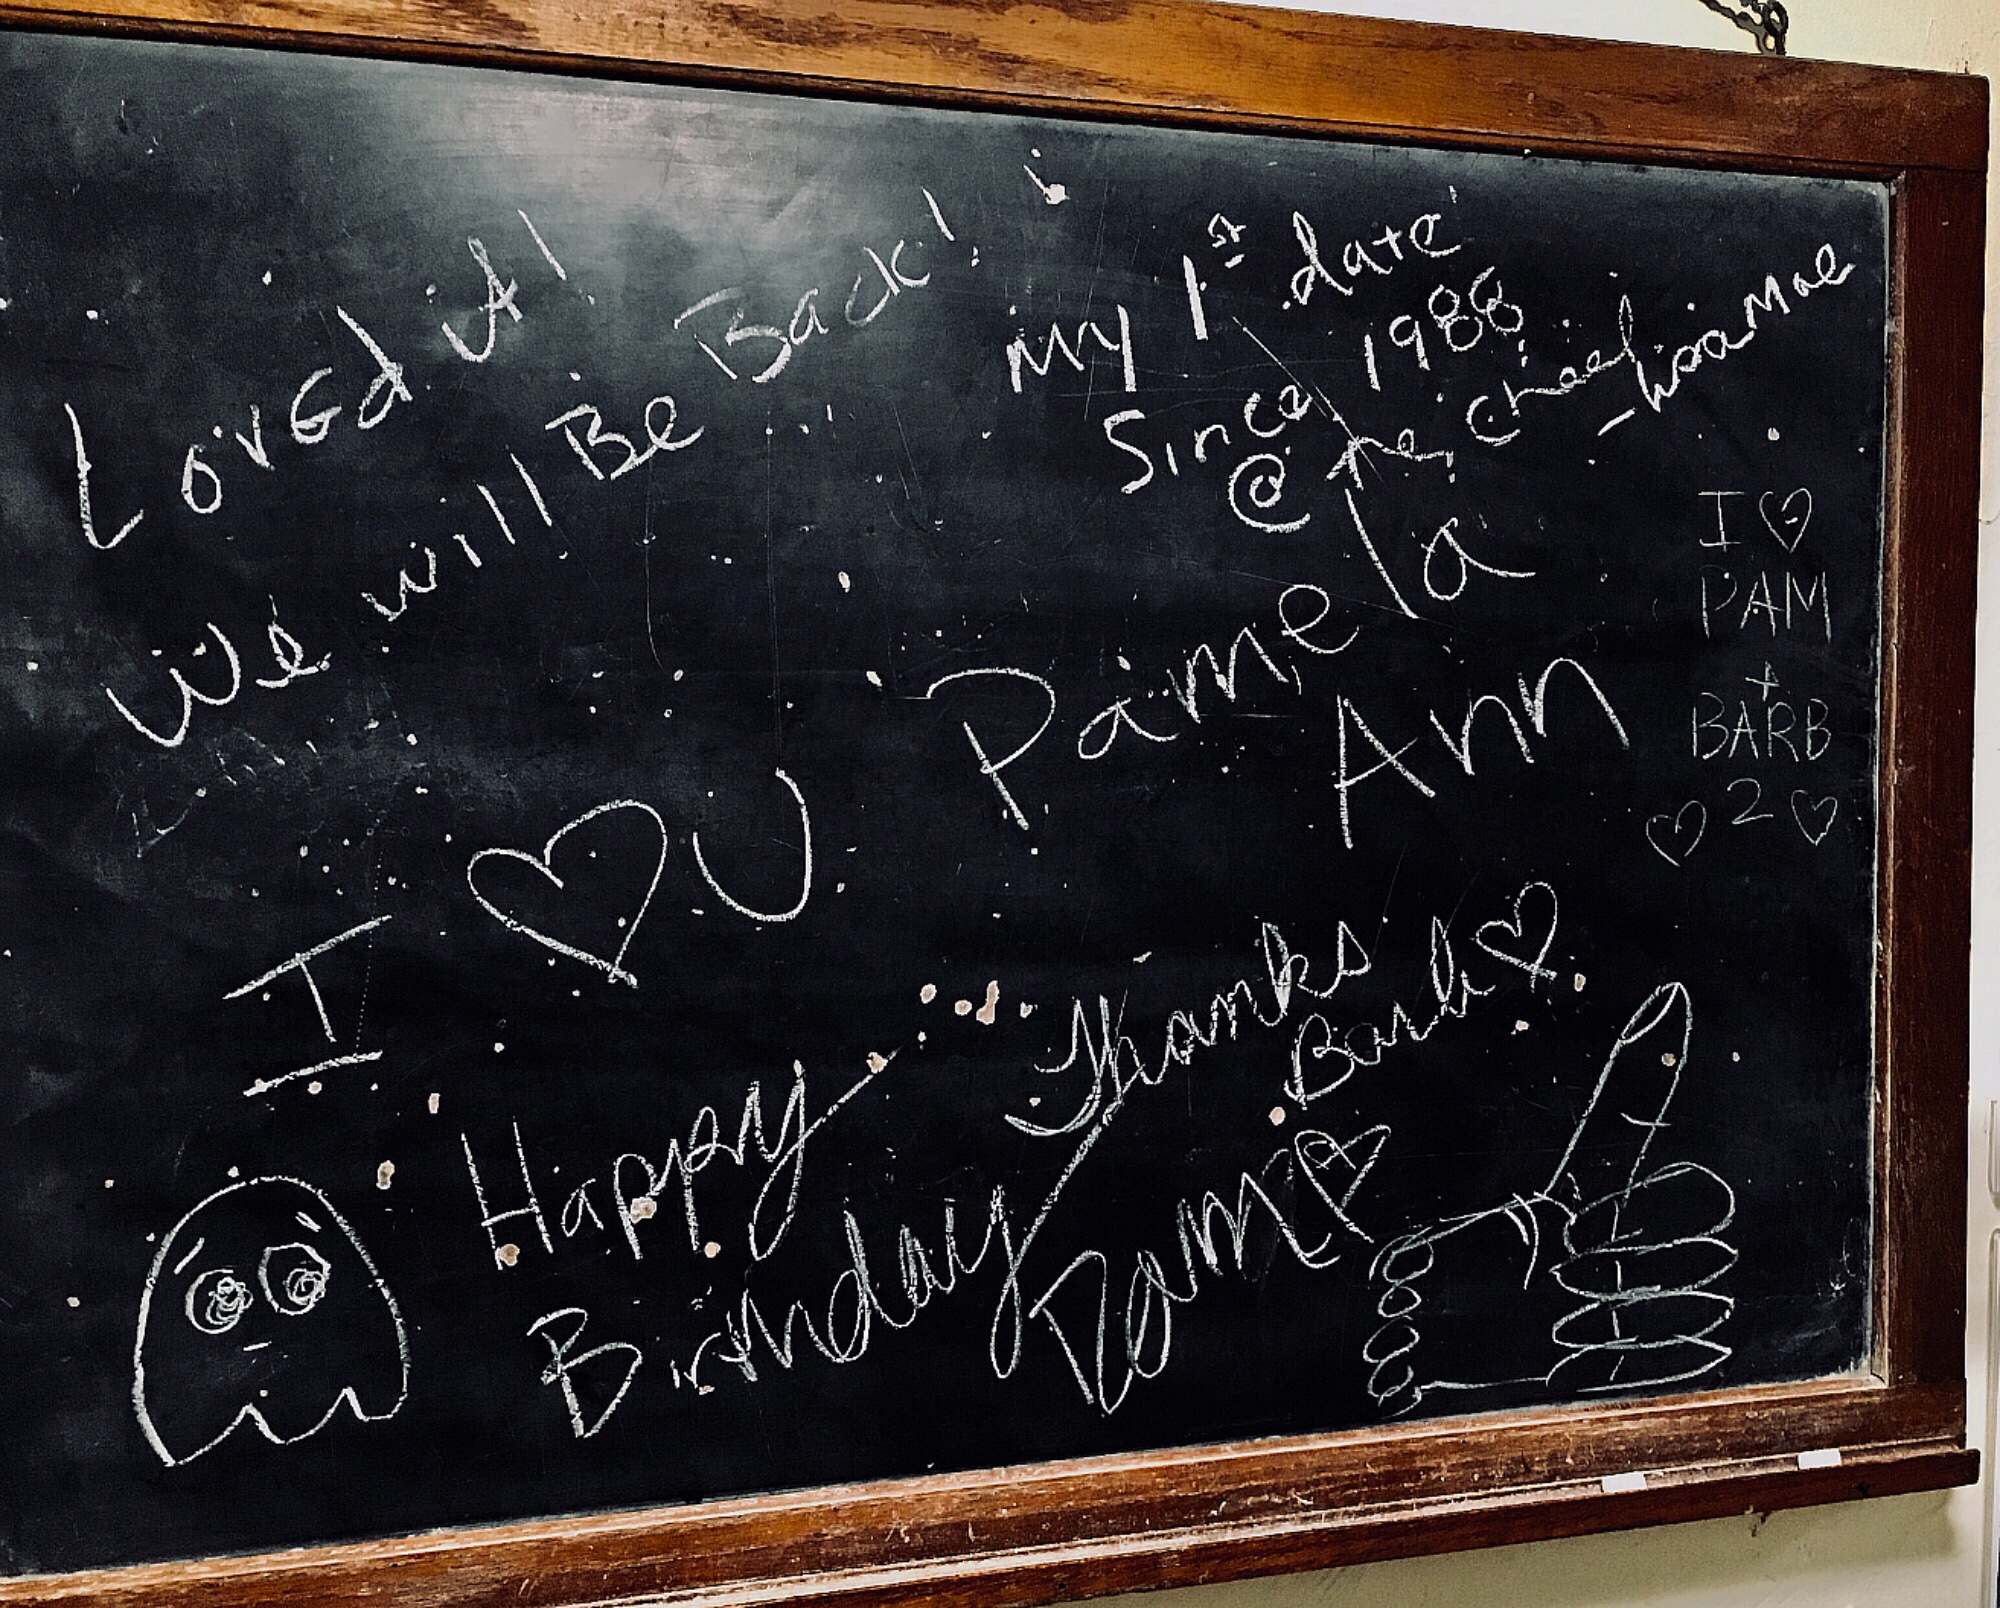 Loved it!
We will Be Back!
My 1st date
Since 1988
@ The Cheel
I ♡ U Pamela
Ann
I ♡
PAM
+
BARB
♡ 2 ♡
Happy
Birthday
Thanks
Barb ♡
Pam ♡